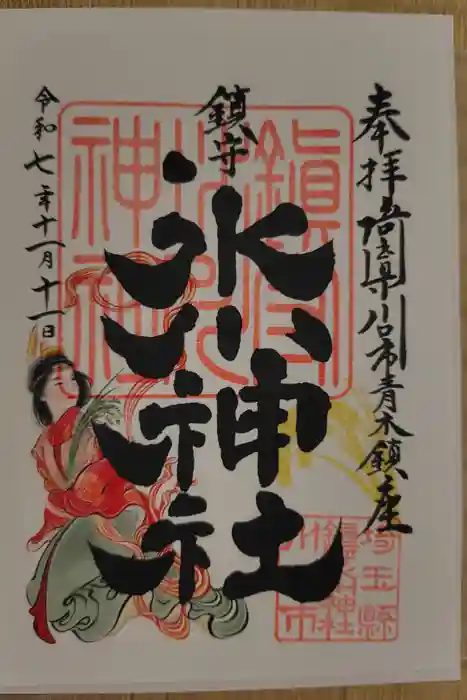 奉拝 埼玉県川口市青木鎮座
鎮守
氷川神社
令和七年十一月十一日
鎮守
氷川
神社
埼玉縣
川口市